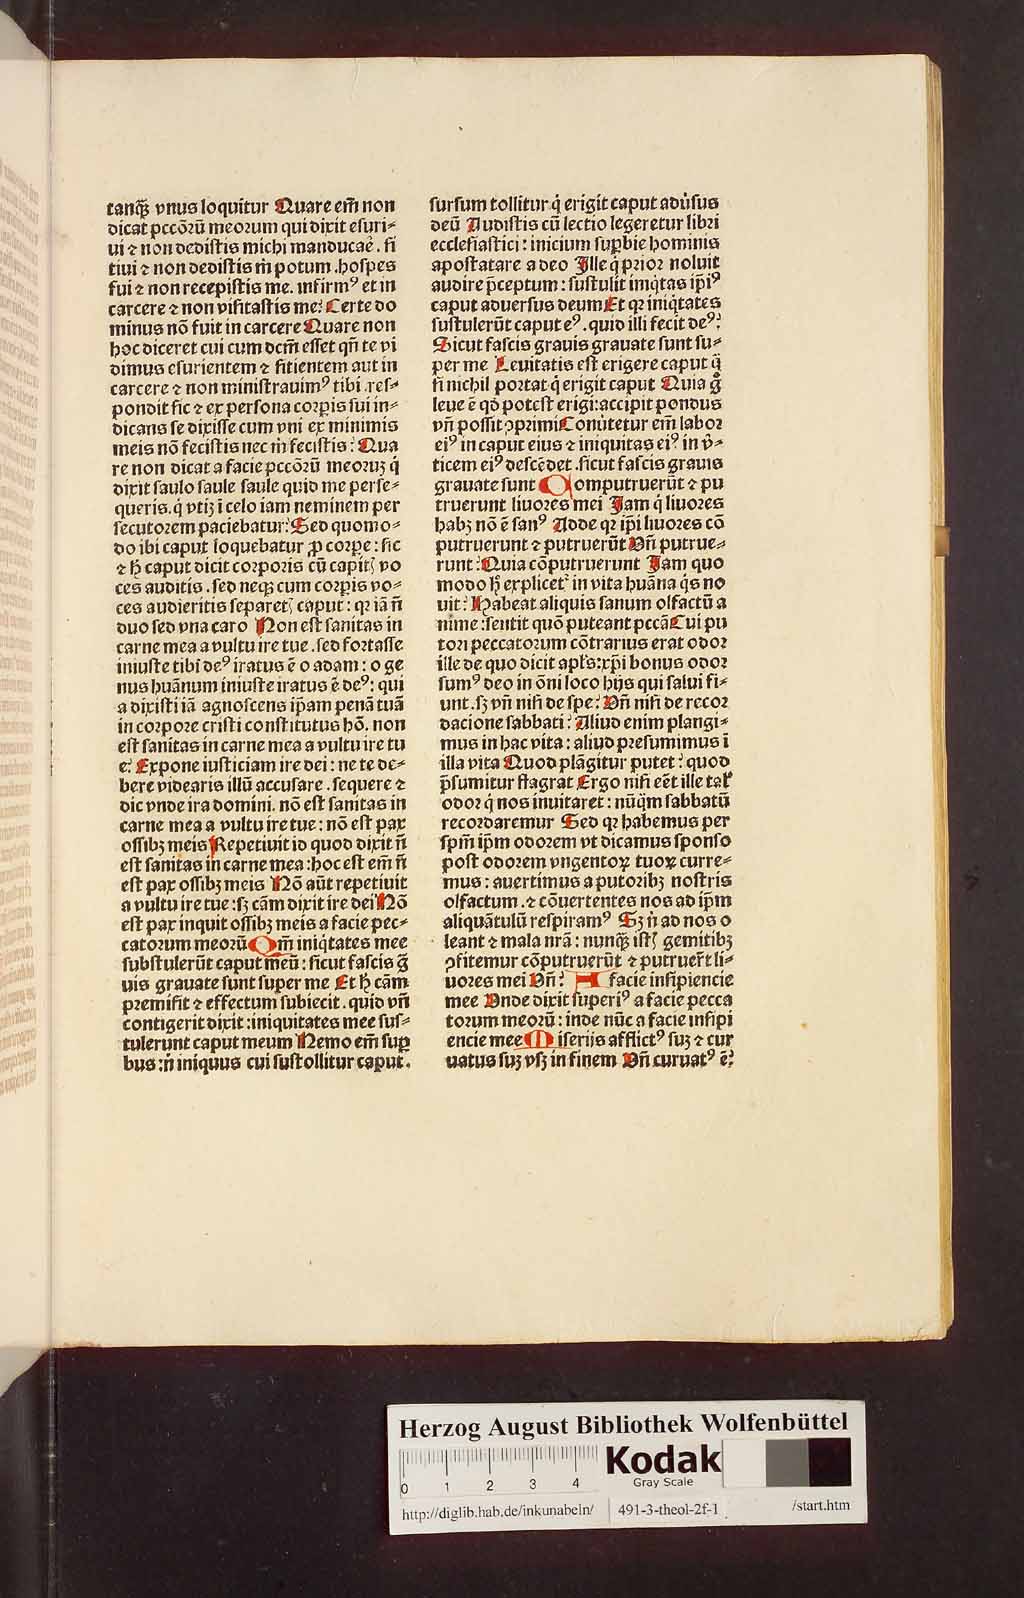 tanq̃ vnus loquitur Quare em̃ non
dicat pccõrũ meorum qui dixit esuri⸗
ui ⁊ non dedistis michi manducaẽ. si
tiui ⁊ non dedistis m̃ potum .hospes
fui ⁊ non recepistis me. infirmꝰ et in
carcere ⁊ non visitastis me? Certe do
minus nõ fuit in carcere Quare non
hoc diceret cui cum dcm̃ esset qñ te vi
dimus esurientem ⁊ sitientem aut in
carcere ⁊ non ministrauimꝰ tibi .res⸗
pondit sic ⁊ ex persona corpĩs sui in⸗
dicans se dixisse cum vni ex minimis
meis nõ fecistis nec m̃ fecistis? Qua
re non dicat a facie pccõrũ meoruꝫ q̃
dixit saulo saule saule quid me perse⸗
queris. q̇ vtiꝫ ĩ celo iam neminem per
secutorem paciebatur? Sed quomo⸗
do ibi caput loquebatur ꝓ corpe : sic
⁊ hͨ caput dicit corporis cũ capitꝭ vo
ces auditis . sed neqꝫ cum corpĩs vo⸗
ces audieritis separetꝭ caput : qꝛ iã ñ
duo sed vna caro Non est sanitas in
carne mea a vultu ire tue . sed fortasse
iniuste tibi deꝰ iratus ẽ o adam : o ge
nus huãnum iniuste iratus ẽ deꝰ: qui
a dixisti iã agnoscens ip̃am penã tuã
in corpore cristi constitutus hõ. non
est sanitas in carne mea a vultu ire tu
e? Expone iusticiam ire dei : ne te de⸗
bere videaris illũ accusare . sequere ⁊
dic vnde ira domini. nõ est sanitas in
carne mea a vultu ire tue : nõ est pax
ossibꝫ meis Repetiuit id quod dixit ñ
est sanitas in carne mea : hoc est em̃ ñ
est pax ossibꝫ meis Nõ aũt repetiuit
a vultu ire tue : sꝫ cãm dixit ire dei Nõ
est pax inquit ossibꝫ meis a facie pec⸗
catorum meorũ Qm̃ iniq̇tates mee
substulerũt caput meũ : sicut fascis g̃
uis grauate sunt super me Et hͨ cãm
premisit ⁊ effectum subiecit . quid vñ
contigerit dixit :iniquitates mee sus⸗
tulerunt caput meum Nemo em̃ suꝑ
bus :ñ iniquus cui sustollitur caput.
sursum tollitur q̇ erigit caput adũsus
deũ Audistis cũ lectio legeretur libri
ecclesiastici : inicium suꝑbie hominis
apostatare a deo Ille q̇ prior noluit
audire p̃ceptum : sustulit imq̇tas ip̃iꝰ
caput aduersus deum Et qꝛ iniq̇tates
sustulerũt caput eꝰ . quid illi fecit deꝰ?
Sicut fascis grauis grauate sunt su⸗
per me Leuitatis est erigere caput q̃
si nichil portat q̇ erigit caput Quia g̊
leue ẽ qd̃ potest erigi:accipit pondus
vñ possit ꝯprimi Conũtetur em̃ labor
eiꝰ in caput eius ⁊ iniquitas eiꝰ in ṽ⸗
ticem eiꝰ descẽdet .sicut fascis grauis
grauate sunt Computruerũt ⁊ pu
truerunt liuores mei Jam q̇ liuores
habꝫ nõ ẽ sanꝰ Adde qꝛ ip̃i liuores cõ
putruerunt ⁊ putruerũt Vñ putrue⸗
runt? Quia cõputruerunt Jam quo
modo hͨ explicetᷣ in vita huãna q̇s no
uit? Habeat aliquis sanum olfactũ a
nime :sentit quõ puteant pccã Cui pu
tori peccatorum cõtrarius erat odor
ille de quo dicit apl̃s:xp̃i bonus odor
sumꝰ deo in õni loco hijs qui salui fi⸗
unt .sꝫ vñ nisi de spe? Vñ nisi de recor
dacione sabbati? Aliud enim plangi⸗
mus in hac vita : aliud presumimus ĩ
illa vita Quod plãgitur putet? quod
p̃sumitur flagrat Ergo nisi eẽt ille tal̃
odor q̇ nos inuitaret : nũq̃m sabbatũ
recordaremur Sed qꝛ habemus per
sp̃m ip̃m odorem vt dicamus sponso
post odorem vngentoꝝ tuoꝝ curre⸗
mus : auertimus a putoribꝫ nostris
olfactum .⁊ cõuertentes nos ad ip̃m
aliquãtulũ respiramꝰ Sꝫ ñ ad nos o
leant ⁊ mala nr̃a : nunq̃ istꝭ gemitibꝫ
ꝯfitemur cõputruerũt ⁊ putruer̃t li⸗
uores mei Vñ? A facie insipiencie
mee Vnde dixit superiꝰ a facie pecca
torum meorũ : inde nũc a facie insipi
encie mee Miserijs afflictꝰ suꝫ ⁊ cur
uatus suꝫ vsꝫ in finem Vñ curuatꝰ ẽ?
Herzog August Bibliothek Wolfenbüttel
0 1 2 3 4
Kodak
Gray Scale
http://diglib.hab.de/inkunabeln/ 491-3-theol-2f-1 /start.htm